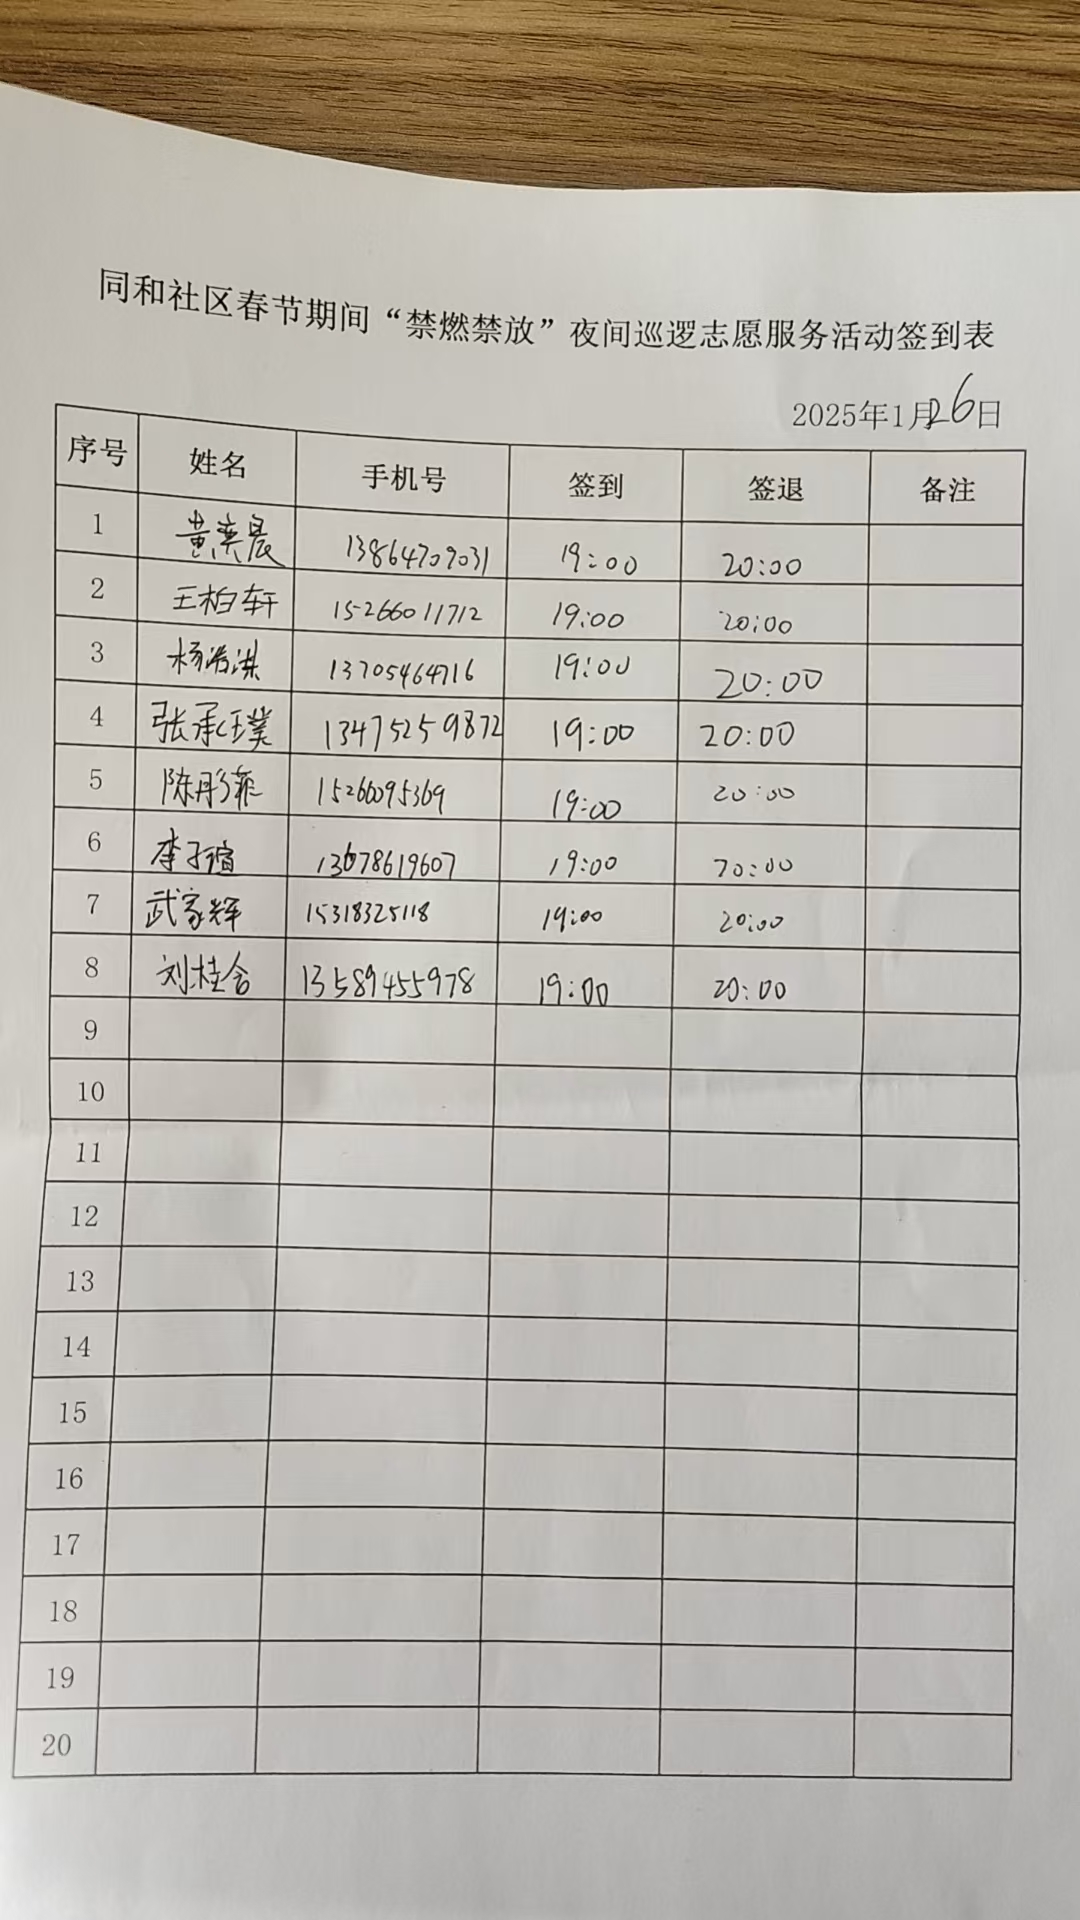 同和社区春节期间“禁燃禁放”夜间巡逻志愿服务活动签到表
2025年1月26日
序号 姓名 手机号 签到 签退 备注
1 黄奕晨 13864709031 19:00 20:00
2 王柏轩 15266011712 19:00 20:00
3 杨浩淇 13705464716 19:00 20:00
4 张承璞 13475259872 19:00 20:00
5 陈彤菲 15266095369 19:00 20:00
6 李子瑄 13678619607 19:00 20:00
7 武家辉 15318325118 19:00 20:00
8 刘桂含 13589455978 19:00 20:00
9
10
11
12
13
14
15
16
17
18
19
20